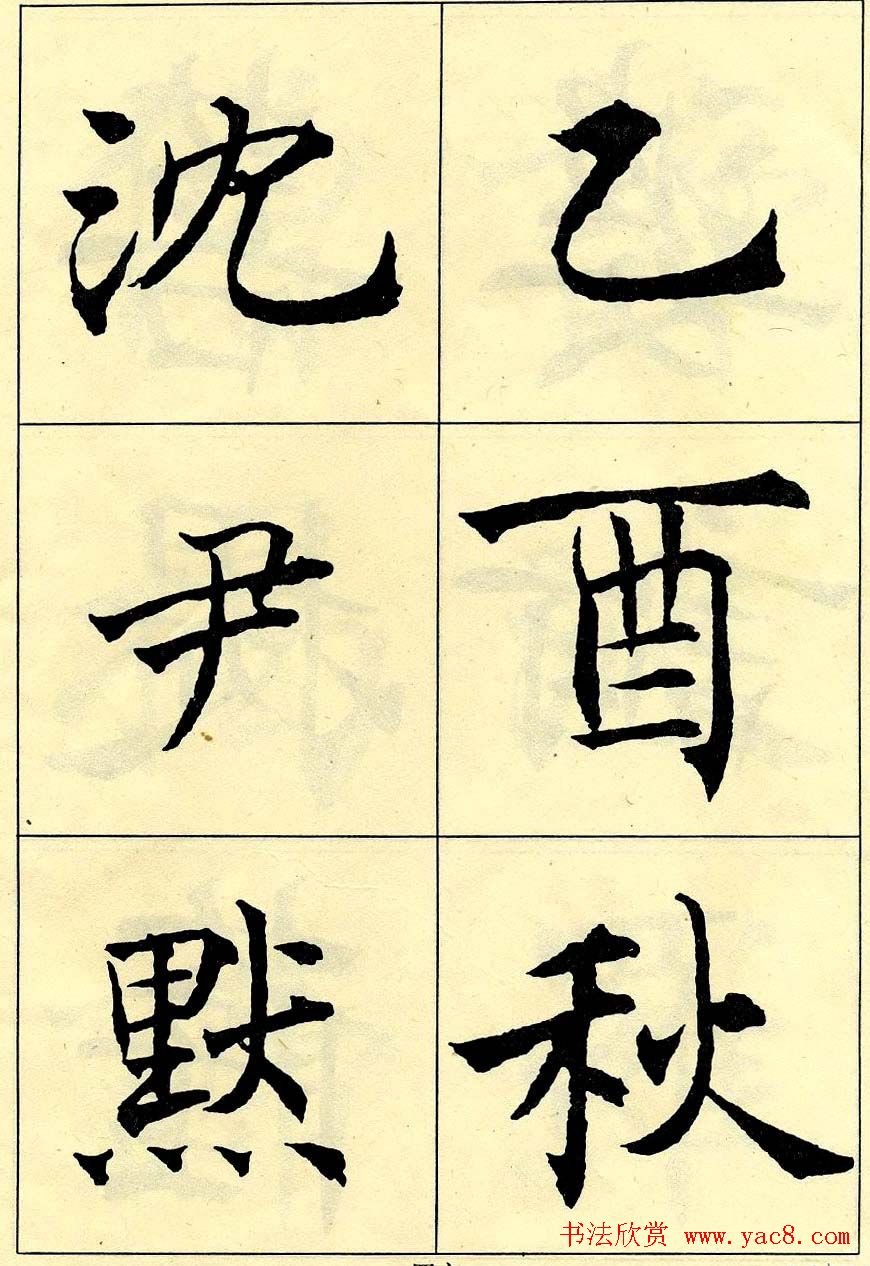 乙酉秋
沈尹默
书法欣赏 www.yac8.com